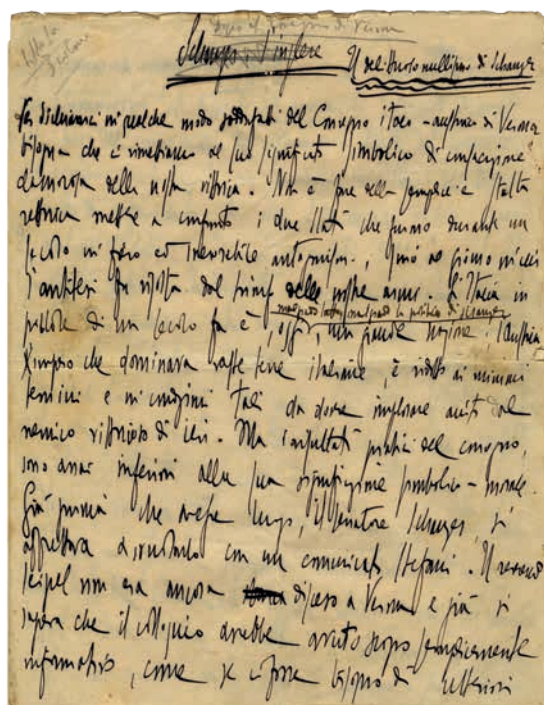 Dopo il Convegno di Verona
Schanzer l'inglese Il delittuoso nullismo di Schanzer
Per dichiararci in qualche modo soddisfatti del Convegno italo-austriaco di Verona
bisogna che ci rimettiamo al suo significato simbolico di
clamorosa della nostra vittoria. Non è fare della semplice e stolta
rettorica mettere a confronto i due Stati che furono durante un
secolo in fiero ed irreducibile antagonismo, sino al giorno in cui
l'antitesi fu risolta dal trionfo delle nostre armi. L'Italia in
malgrado la politica di Schanzer
di un secolo fa è, oggi, una grande nazione. L'Austria
l'impero che dominava vaste terre italiane, è ridotto ai minimi
termini e in condizioni tali da dover implorare aiuti al
nemico vittorioso di ieri. Ma i risultati pratici del convegno,
sono assai inferiori alla sua significazione simbolico-morale.
Già prima che avesse luogo, il senatore Schanzer, si
affrettava a svuotarlo con un comunicato Stefani. Il reverendo
Seipel non era ancora disceso a Verona e già si
sapeva che il colloquio avrebbe avuto scopo semplicemente
informativo, come se ci fosse bisogno di ulteriori